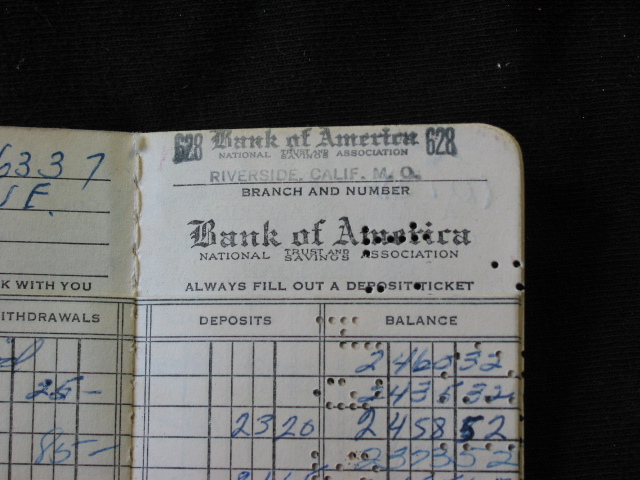 6337
628 Bank of America 628
NATIONAL TRUST AND SAVINGS ASSOCIATION
RIVERSIDE, CALIF. M. O.
BRANCH AND NUMBER
Bank of America
NATIONAL TRUST AND SAVINGS ASSOCIATION
K WITH YOU ALWAYS FILL OUT A DEPOSIT TICKET
ITHDRAWALS DEPOSITS BALANCE
2460 32
25 – 2435 32
23 20 2458 52
85 – 2373 52